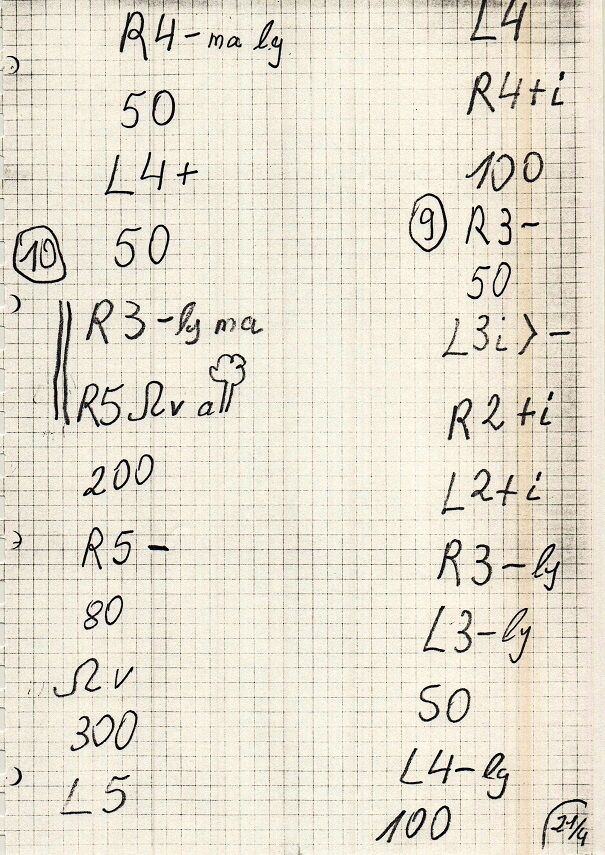 R4-ma ly
50
L4+
10 50
R3-ly ma
R5 Ω v a
200
R5-
80
Ω v
300
L5
L4
R4+i
100
9 R3-
50
L3i>-
R2+i
L2+i
R3-ly
L3-ly
50
L4-ly
100
21/4